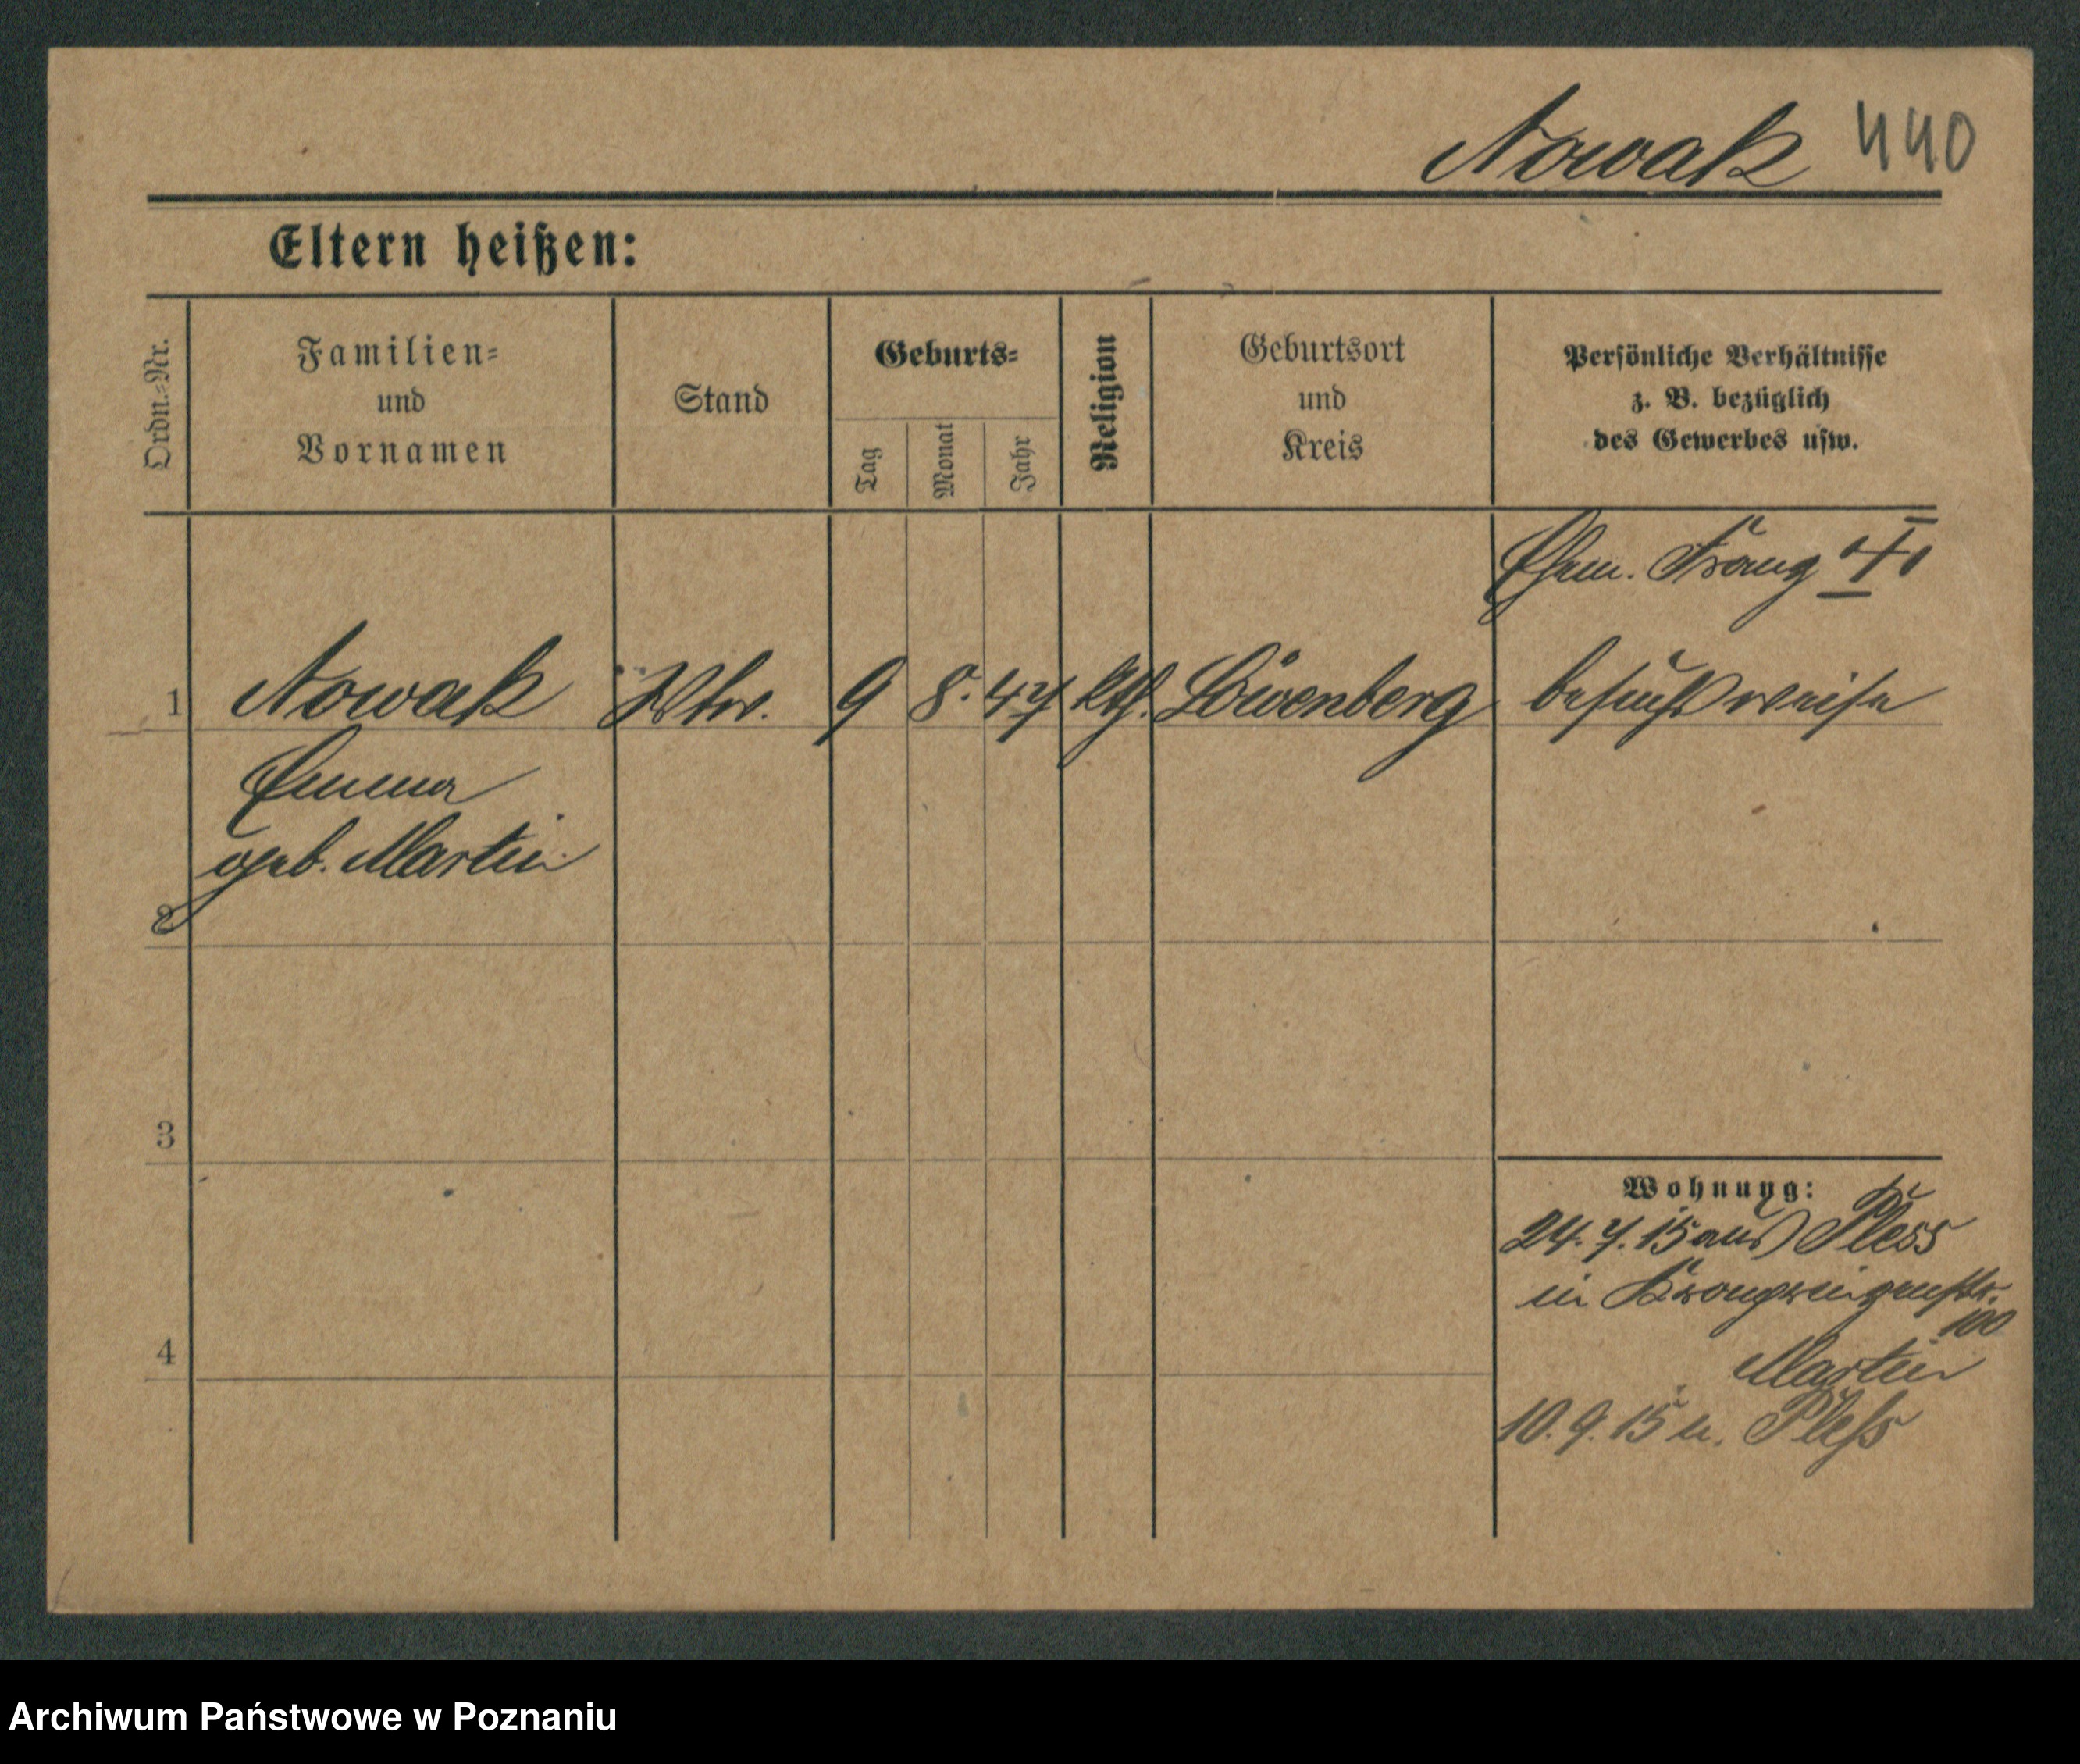 Nowak 440
Eltern heißen:
Ordn.-Nr.
Familien-
und
Vornamen
Stand
Geburts-
Tag
Monat
Jahr
Religion
Geburtsort
und
Kreis
Persönliche Verhältnisse
z. B. bezüglich
des Gewerbes usw.
Ehem. Franz
1 Nowak Wtw. 9 8. 47 kth. Löwenberg besuchsweise
Emma
geb. Martin
2
3
4
Wohnung:
24. 7. 15 aus Pless
in Kronprinzenstr.
100
Martin
10. 9. 15 n. Pleß
Archiwum Państwowe w Poznaniu